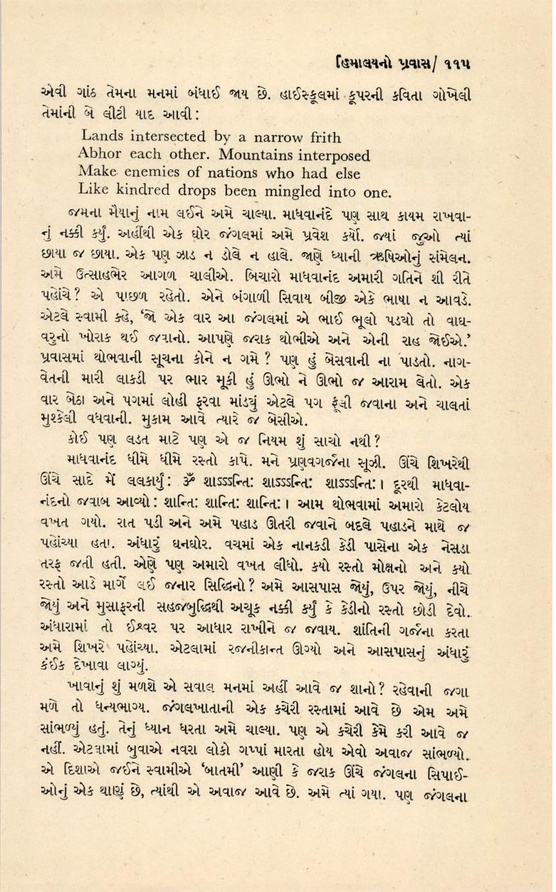 હિમાલયનો પ્રવાસ/ ૧૧૫
એવી ગાંઠ તેમના મનમાં બંધાઈ જાય છે. હાઈસ્કૂલમાં કૂપરની કવિતા ગોખેલી
તેમાંની બે લીટી યાદ આવી :
Lands intersected by a narrow frith
Abhor each other. Mountains interposed
Make enemies of nations who had else
Like kindred drops been mingled into one.
જમના મૈયાનું નામ લઈને અમે ચાલ્યા. માધવાનંદે પણ સાથ કાયમ રાખવા-
નું નક્કી કર્યું. અહીંથી એક ઘોર જંગલમાં અમે પ્રવેશ કર્યો. જ્યાં જુઓ ત્યાં
છાયા જ છાયા. એક પણ ઝાડ ન ડોલે ન હાલે. જાણે ધ્યાની ઋષિઓનું સંમેલન.
અમે ઉત્સાહભેર આગળ ચાલીએ. બિચારો માધવાનંદ અમારી ગતિને શી રીતે
પહોંચે ? એ પાછળ રહેતો. એને બંગાળી સિવાય બીજી એકે ભાષા ન આવડે.
એટલે સ્વામી કહે, ‘જો એક વાર આ જંગલમાં એ ભાઈ ભૂલો પડ્યો તો વાઘ-
વરુનો ખોરાક થઈ જવાનો. આપણે જરાક થોભીએ અને એની રાહ જોઈએ.’
પ્રવાસમાં થોભવાની સૂચના કોને ન ગમે ? પણ હું બેસવાની ના પાડતો. નાગ-
વેતની મારી લાકડી પર ભાર મૂકી હું ઊભો ને ઊભો જ આરામ લેતો. એક
વાર બેઠા અને પગમાં લોહી ફરવા માંડ્યું એટલે પગ ફૂલી જવાના અને ચાલતાં
મુશ્કેલી વધવાની. મુકામ આવે ત્યારે જ બેસીએ.
કોઈ પણ લડત માટે પણ એ જ નિયમ શું સાચો નથી ?
માધવાનંદ ધીમે ધીમે રસ્તો કાપે. મને પ્રણવગર્જના સૂઝી. ઊંચે શિખરેથી
ઊંચે સાદે મેં લલકાર્યું : ॐ शाऽऽऽन्तिः शाऽऽऽन्तिः शाऽऽऽन्तिः। દૂરથી માધવા-
નંદનો જવાબ આવ્યો : शान्तिः शान्तिः शान्तिः। આમ થોભવામાં અમારો કેટલોય
વખત ગયો. રાત પડી અને અમે પહાડ ઊતરી જવાને બદલે પહાડને માથે જ
પહોંચ્યા હતા. અંધારું ઘનઘોર. વચમાં એક નાનકડી કેડી પાસેના એક નેસડા
તરફ જતી હતી. એણે પણ અમારો વખત લીધો. કયો રસ્તો મોક્ષનો અને કયો
રસ્તો આડે માર્ગે લઈ જનાર સિદ્ધિનો ? અમે આસપાસ જોયું, ઉપર જોયું, નીચે
જોયું અને મુસાફરની સહજબુદ્ધિથી અચૂક નક્કી કર્યું કે કેડીનો રસ્તો છોડી દેવો.
અંધારામાં તો ઈશ્વર પર આધાર રાખીને જ જવાય. શાંતિની ગર્જના કરતા
અમે શિખરે પહોંચ્યા. એટલામાં રજનીકાન્ત ઊગ્યો અને આસપાસનું અંધારું
કંઈક દેખાવા લાગ્યું.
ખાવાનું શું મળશે એ સવાલ મનમાં અહીં આવે જ શાનો ? રહેવાની જગા
મળે તો ધન્યભાગ્ય. જંગલખાતાની એક કચેરી રસ્તામાં આવે છે એમ અમે
સાંભળ્યું હતું. તેનું ધ્યાન ધરતા અમે ચાલ્યા. પણ એ કચેરી કેમે કરી આવે જ
નહીં. એટલામાં બુવાએ નવરા લોકો ગપ્પાં મારતા હોય એવો અવાજ સાંભળ્યો.
એ દિશાએ જઈને સ્વામીએ ‘બાતમી’ આણી કે જરાક ઊંચે જંગલના સિપાઈ-
ઓનું એક થાણું છે, ત્યાંથી એ અવાજ આવે છે. અમે ત્યાં ગયા. પણ જંગલના